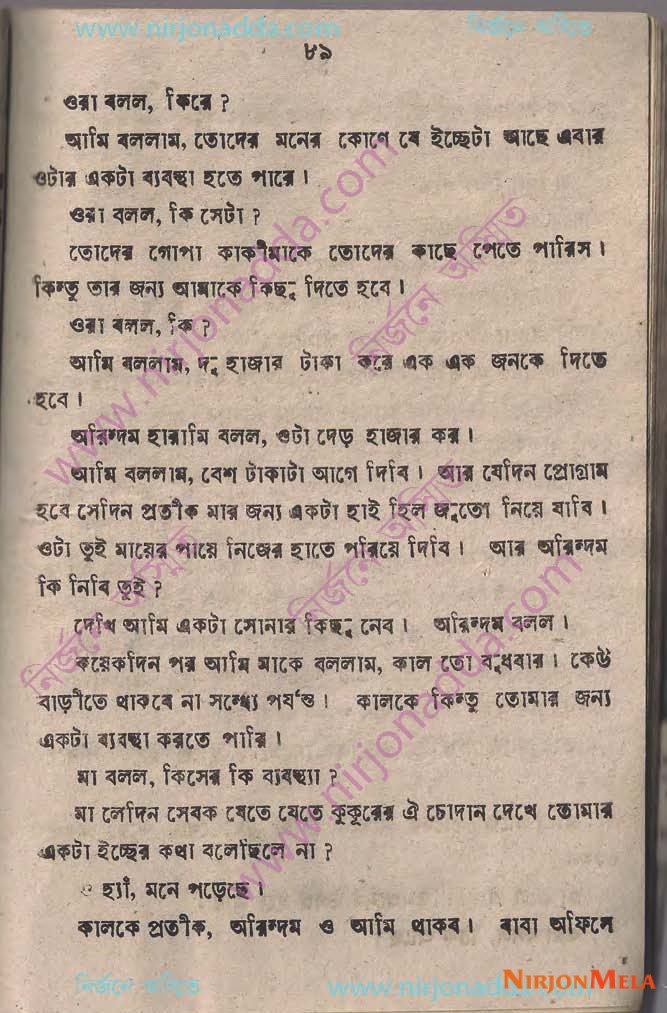 www.nirjonadda.com
নির্জনে অস্মিত
৮৯
ওরা বলল, কিরে ?
আমি বললাম, তোদের মনের কোণে যে ইচ্ছেটা আছে এবার
ওটার একটা ব্যবস্থা হতে পারে।
ওরা বলল, কি সেটা ?
তোদের গোপা কাকীমাকে তোদের কাছে পেতে পারিস।
কিন্তু তার জন্য আমাকে কিছু দিতে হবে।
ওরা বলল, কি ?
আমি বললাম, দু হাজার টাকা করে এক এক জনকে দিতে
হবে।
অরিন্দম হারামি বলল, ওটা দেড় হাজার কর।
আমি বললাম, বেশ টাকাটা আগে দিবি। আর যেদিন প্রোগ্রাম
হবে সেদিন প্রতীক মার জন্য একটা হাই হিল জুতো নিয়ে যাবি।
ওটা তুই মায়ের পায়ে নিজের হাতে পরিয়ে দিবি। আর অরিন্দম
কি নিবি তুই ?
দেখি আমি একটা সোনার কিছু নেব। অরিন্দম বলল।
কয়েকদিন পর আমি মাকে বললাম, কাল তো বুধবার। কেউ
বাড়ীতে থাকবে না সন্ধ্যে পর্যন্ত। কালকে কিন্তু তোমার জন্য
একটা ব্যবস্থা করতে পারি।
মা বলল, কিসের কি ব্যবস্থ্যা ?
মা লেদিন সেবক যেতে যেতে কুকুরের ঐ চোদান দেখে তোমার
একটা ইচ্ছের কথা বলেছিলে না ?
হ্যাঁ, মনে পড়েছে।
কালকে প্রতীক, অরিন্দম ও আমি থাকব। বাবা অফিসে
নির্জনে অস্মিত
www.nirjonadda.com
NIRJONMELA